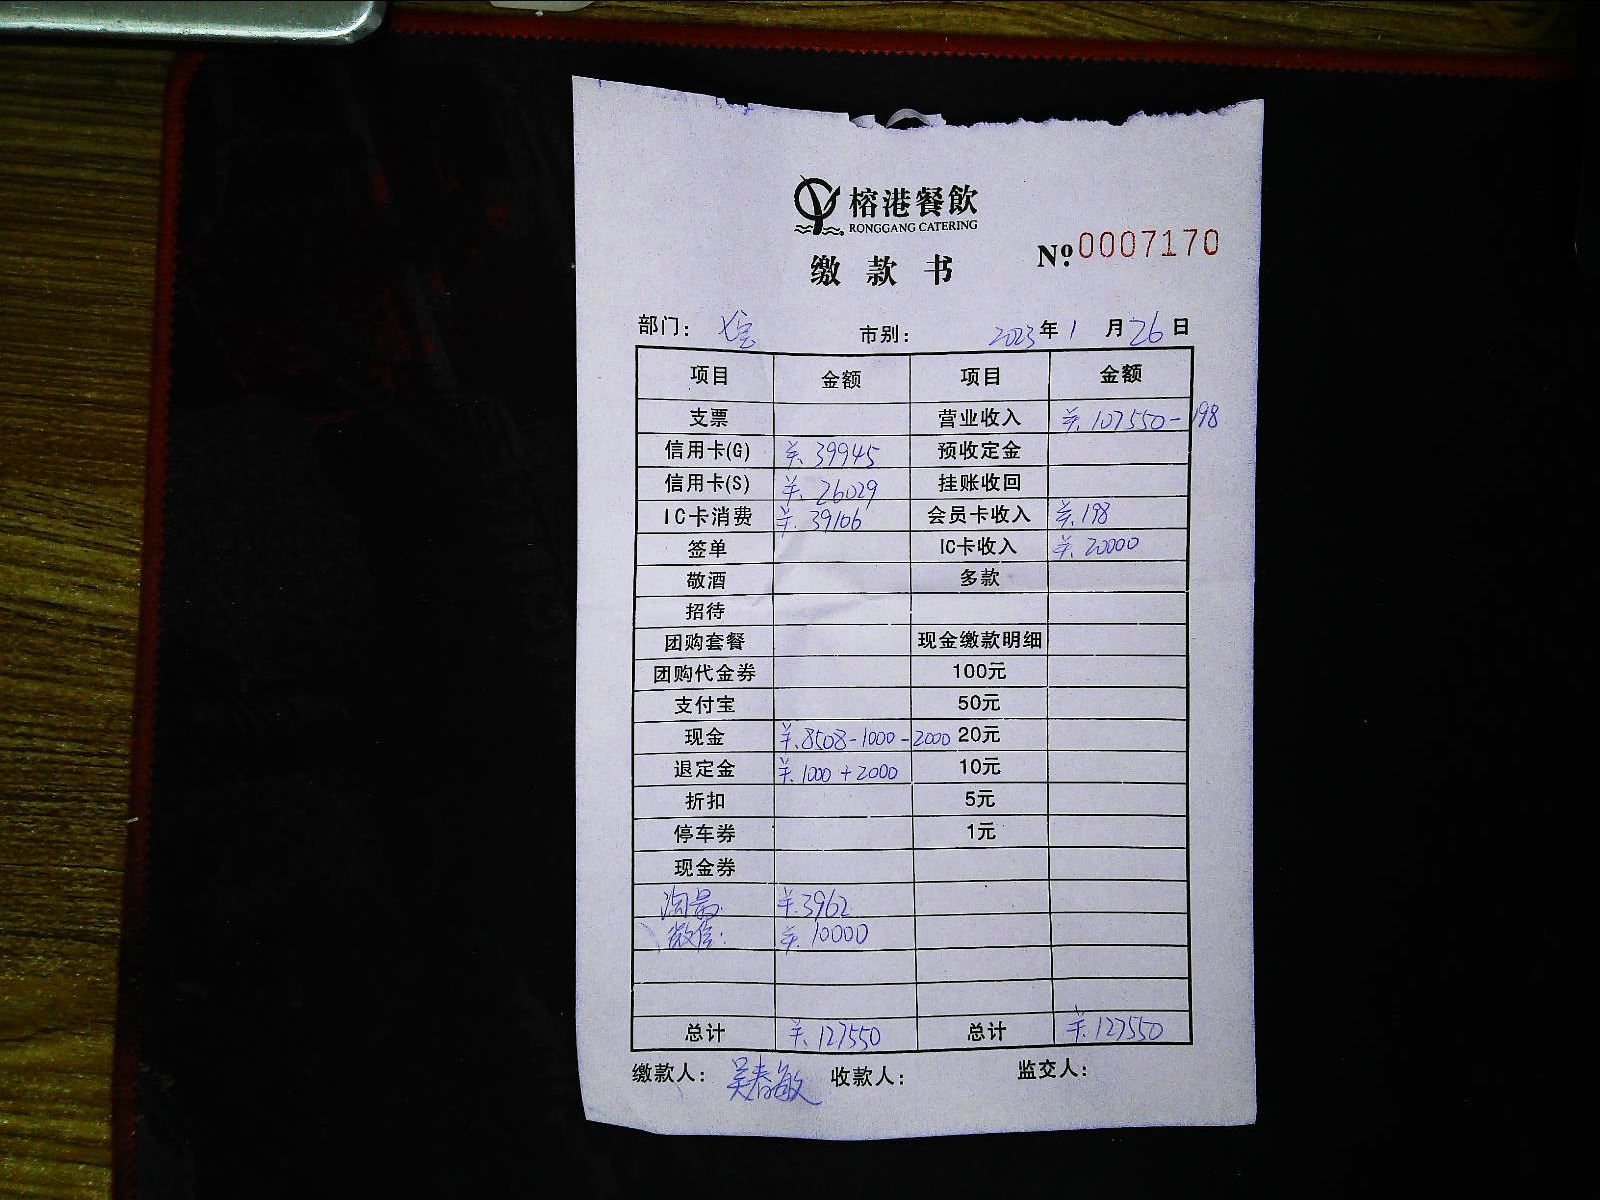 榕港餐飲
RONGGANG CATERING
缴款书
Nº:0007170
部门: 市别: 2023年1月26日
项目 金额 项目 金额
支票 营业收入 ¥.107550-198
信用卡(G) ¥.39945 预收定金
信用卡(S) ¥.26029 挂账收回
IC卡消费 ¥.39106 会员卡收入 ¥.198
签单 IC卡收入 ¥.20000
敬酒 多款
招待
团购套餐 现金缴款明细
团购代金券 100元
支付宝 50元
现金 ¥.8508-1000-2000 20元
退定金 ¥.1000+2000 10元
折扣 5元
停车券 1元
现金券
¥.3962
微信: ¥.10000
总计 ¥.127550 总计 ¥.127550
缴款人: 吴春敏 收款人: 监交人: